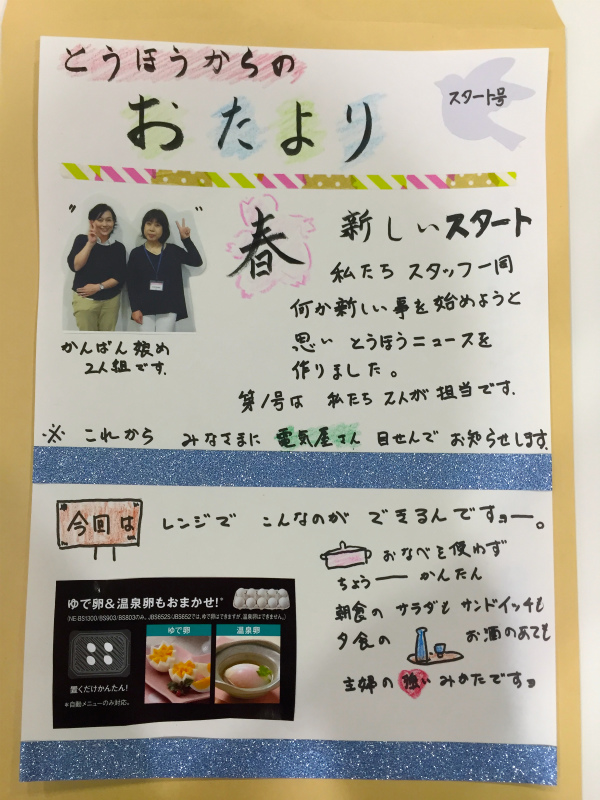 とうほうからの
おたより
スタート号
春
新しいスタート
私たち スタッフ一同
何か新しい事を始めようと
思い とうほうニュースを
作りました。
第1号は 私たち 2人が 担当です.
" "
かんばん娘め
2人組です.
※ これから みなさまに 電気屋さん 目せんで お知らせします.
今回は
レンジで こんなのが できるんですョー。
おなべを使わず
ちょうー かんたん
朝食の サラダも サンドイッチも
夕食の お酒のあても
主婦の 強い みかたですョ
ゆで卵&温泉卵もおまかせ!*
(NE-BS1300/BS903/BS803のみ。JBS652S/JBS652では、ゆで卵はできますが、温泉卵はできません。)
ゆで卵
温泉卵
置くだけかんたん!
*自動メニューのみ対応。